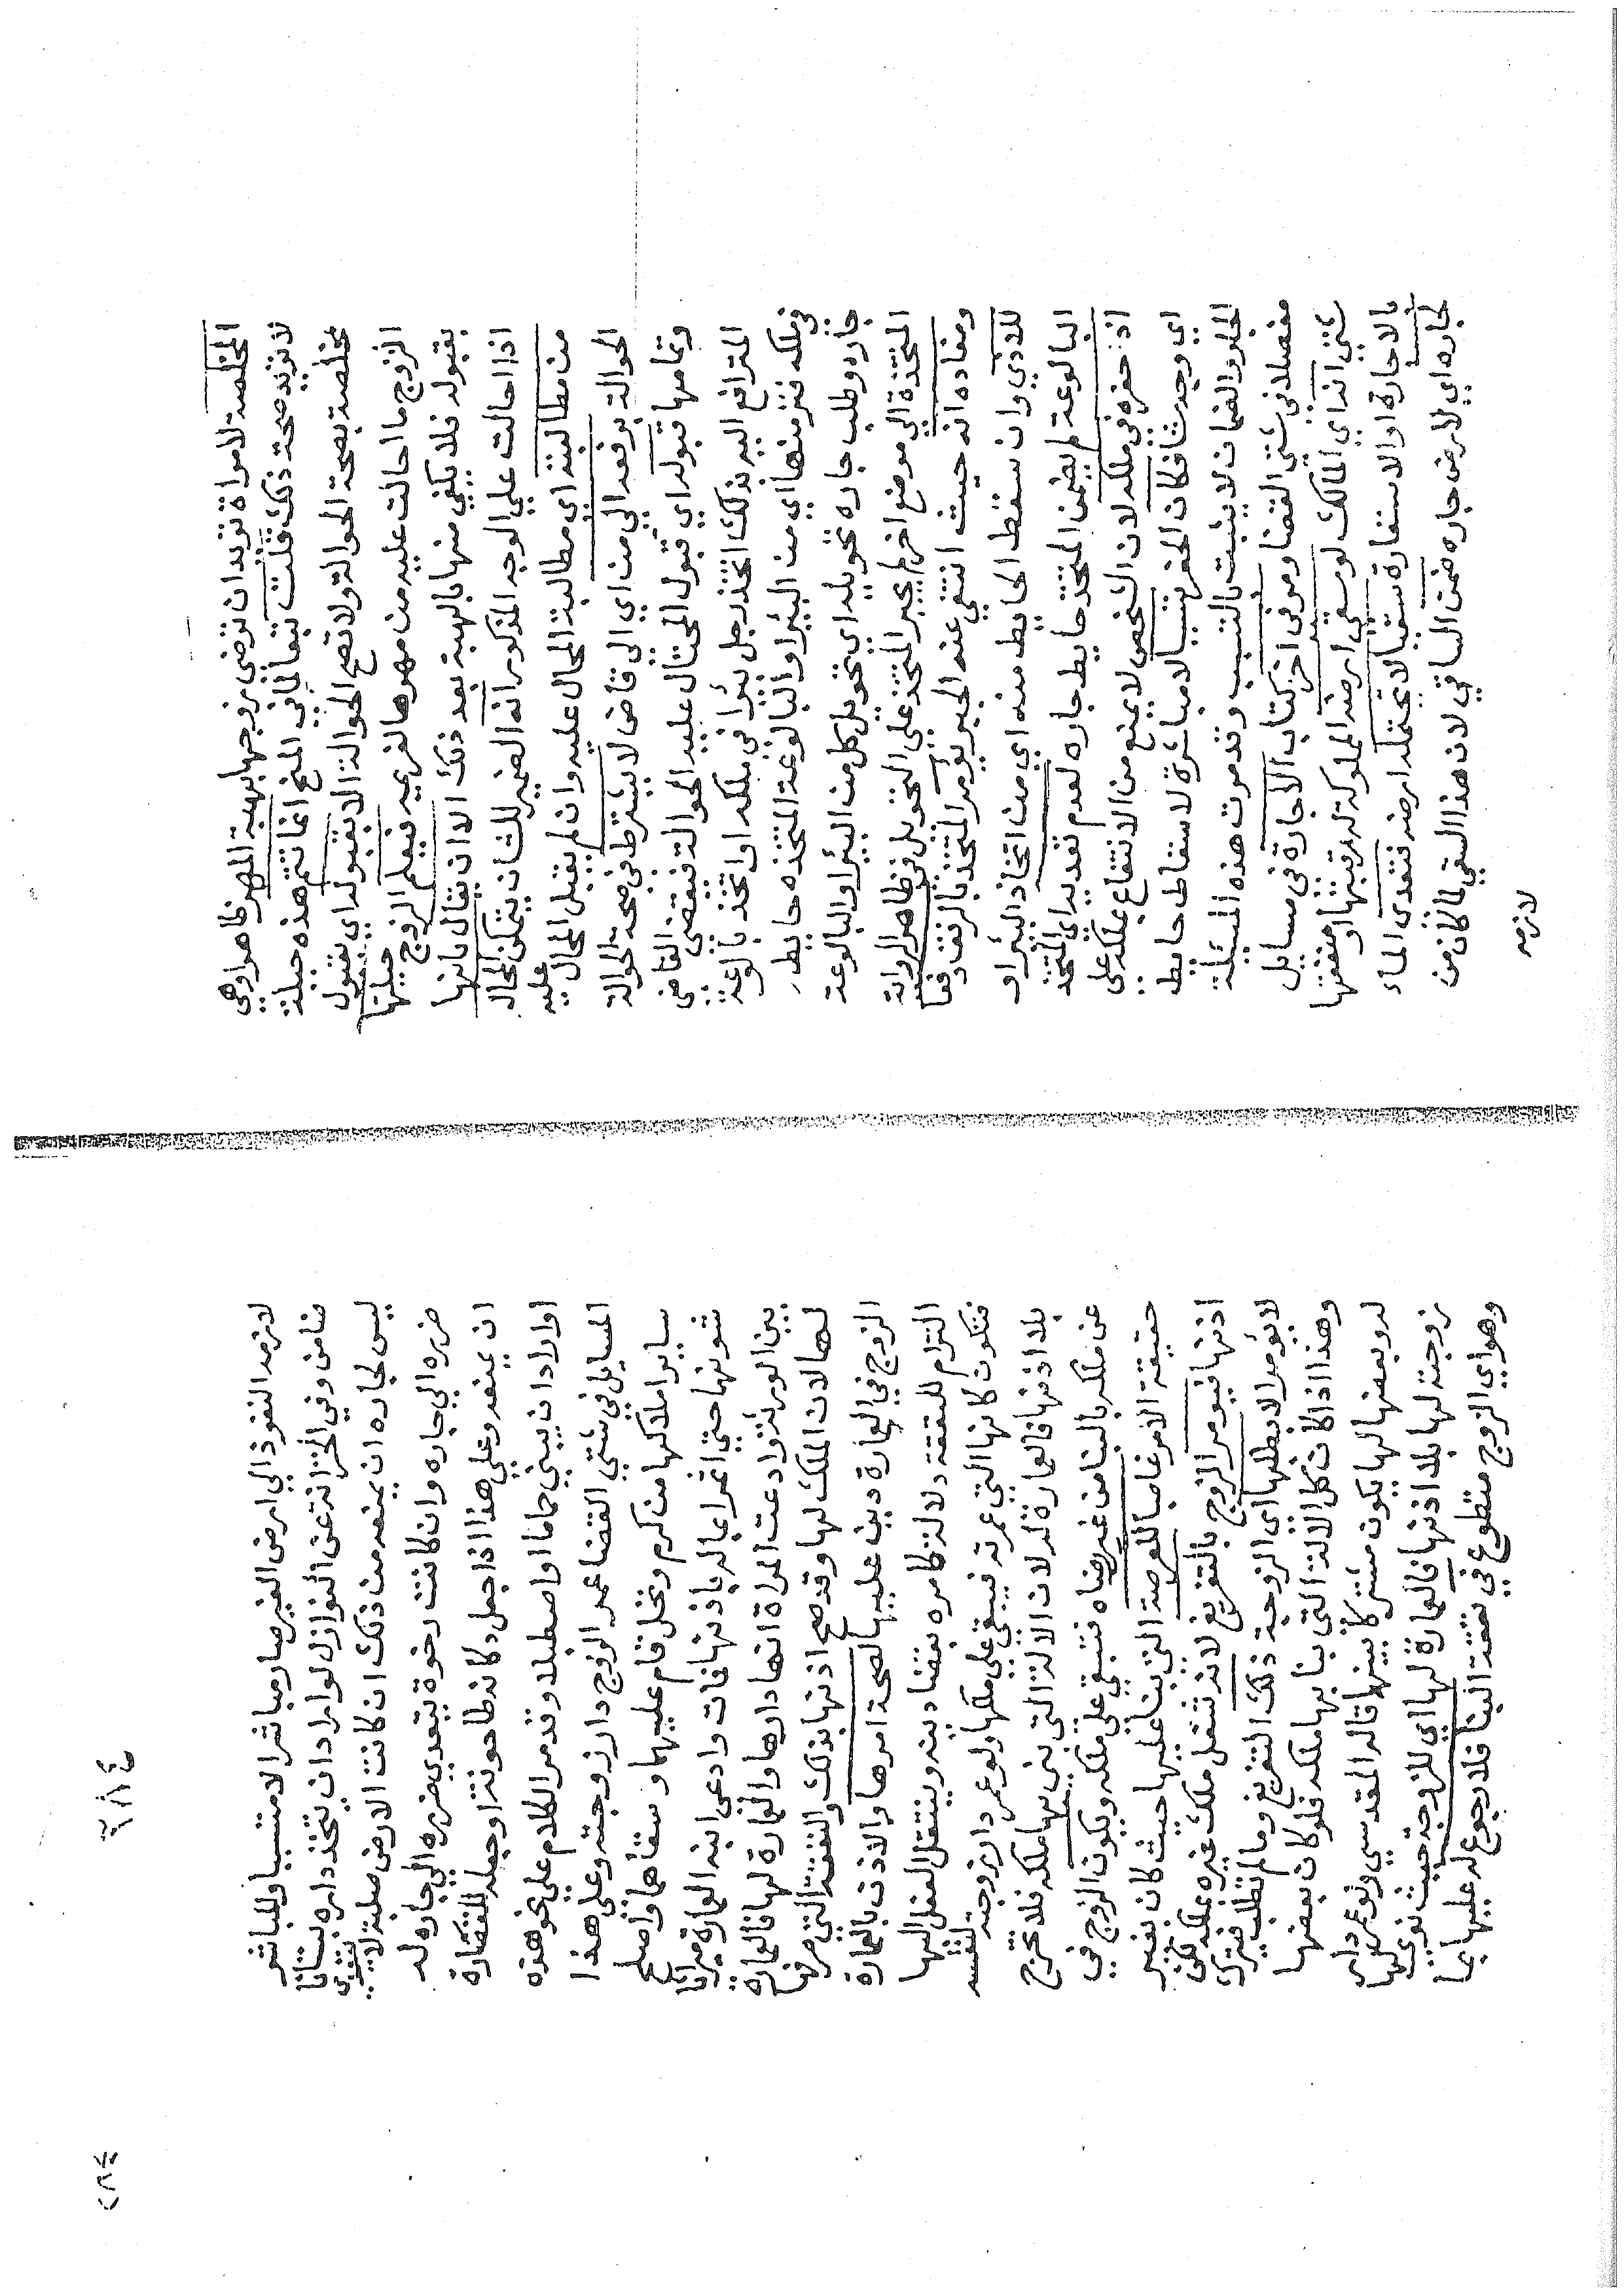 المخلصة لامراة تريد ان ترضى زوجها بهبة المهر ظاهرا وهي
لا تريد صحة ذلك قلت تبعا لما في المنح انما تتم هذه حيلة
مخلصة بصحة الحوالة ولا تصح الحوالة الا بقبوله اي بقبول
الزوج ما احالت عليه من مهرها لغريمه فيعلم الزوج حيلتها
بقبوله فلا يكفي منها بالهبة بعد ذلك الا ان يقال بانها
اذا احالت علي الوجه المذكور انه الضمير للشان يتمكن المحال عليه
من مطالبته اي مطالبة المحال عليه وان لم يقبل المحال
الحوالة برفعه الي من اي الى قاض لا يشترط في صحة الحوالة
وتمامها قبوله اي قبول المحتال عليه الحوالة فيقضى القاضي
المترافع اليه بذلك اتخذ رجل بئرا في ملكه او اتخذ بالوعة
في ملكه فنز منها اي من البئر او البالوعة المتخذه حايط
جاره وطلب جاره تحويله اي تحويل كل من البئر او البالوعة
المتخذة الي موضع اخر لم يجبر المتخذ على التحويل في ظاهر الرواية
ومفاده انه حيث انتفي عنه الجبر يؤمر المتخذ بالرفق دفعا
للاذي وان سقط الحايط منه اي من اتخاذ البئر او
البالوعة لم يضمن المتخذ حايط جاره لعدم تعديه اي المتخذ
اذ حفره في ملكه لان الشخص لا يمنع من الانتفاع بملكه على
اي وجه شا فكان الحفر تسببا لا مباشرة لاسقاط حايط
الجار والضمان لا يثبت بالتسبب وقد مرت هذه المسئلة
مفصلا في شتي القضا ومر في اخر كتاب الاجارة في مسايل
شتى انه اي المالك لو سقى ارضه المملوكة له رقبتها او منفعتها
بالاجارة او الاستعارة سقيا لا يحتمله ارضه فتعدى الماء
لجاره اي لارض جاره ضمن الساقي لان هذا السقي لما كان من
لازمه
٢٨٤
٢٨٤
لازمه النفوذ الي ارض الغير صار مباشرا لا متسببا والمباشر
ضامن وفي الخزانة عن النوازل لو اراد ان يتخذ داره بستانا
ليس لجاره ان يمنعه من ذلك ان كانت الارض صلبة لا يتعدى
ضرره الي جاره وان كانت رخوة يتعدي ضرره الي جاره له
ان يمنعه وعلي هذا اذا جعل دكانه طاحونة او جعله للقصارة
او اراد ان يبني حماما او اصطبلا وقد مر الكلام علي نحو هذه
المسايل في شتي القضا عمر الزوج دار زوجته وعلى هذا
ساير املاكها من كرم ونخل قام عليهما وسقاهما واصلح
شونها حتي اثمرا بماله باذنها فات وادعى ابنه العمارة ميراثا
بين الورثة وادعت المراة انها دارها والعمارة لها فالعمارة
لها لان الملك لها وقد صح اذنها بذلك والنفقة التي صرفها
الزوج في العمارة دين عليها لصحة امرها والاذن بالعمارة
التزام للنفقة دلالة كامره بقضا دينه وينتقل الفعل اليها
فتكون كانها التي عمرته فيبقي علي ملكها ولو عمر دار زوجته لنفسه
بلا اذنها فالعمارة له لان الالة التي بنى بها ملكه فلا تخرج
عن ملكه بالبنا من غير رضاه فتبقي على ملكه ويكون الزوج في
حقيقة الامر غاصبا للعرصة التي بنا عليها حيث كان بغير
اذنها فيومر الزوج بالتفريغ لانه شغل ملك غيره بملكه
لا يؤمر الا بطلبها اي الزوجة ذلك التفريغ وما لم تطلب يترك
وهذا اذا كان كل الالة التي بنا بها ملكه فلو كان بعضها
له وبعضها لها يكون مشتركا بينهما قاله المقدسي ولو عمر دار
زوجته لها بلا اذنها فالعمارة لها اي للزوجة حيث نوى لها
وهو اي الزوج متطوع في نفقة البنا فلا رجوع له عليها بما